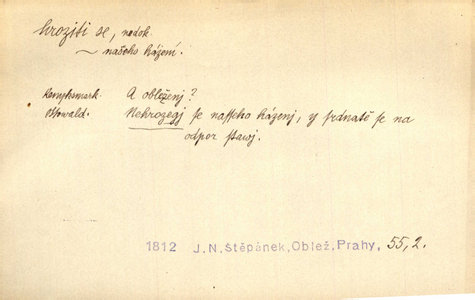 hroziti se, nedok.
~ našeho házení.
Kempksmark. A obleženj?
Ottowald. Nehrozegj se nasseho házenj, y srdnatě se na
odpor stawj.
1812 J.N.Štěpánek,Oblež.Prahy, 55,2.